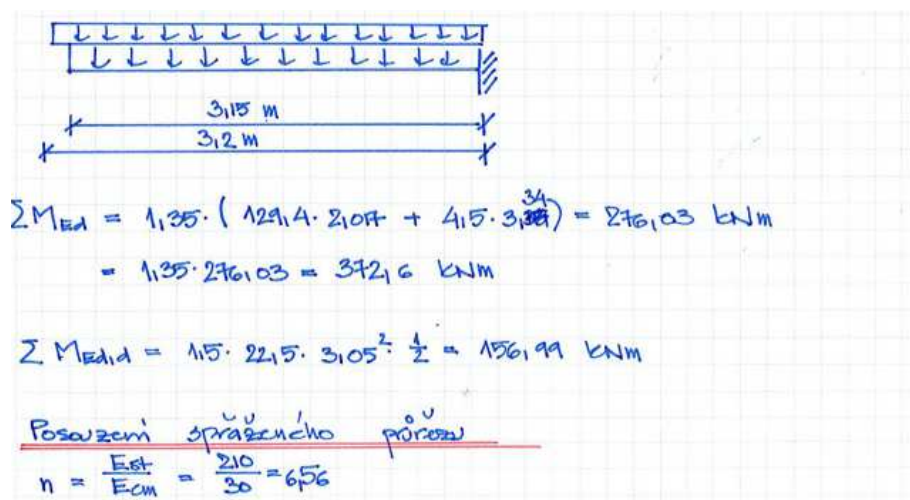 3,15 m
3,2 m
ΣM_Ed = 1,35·( 129,4· 2,017 + 4,5· 3,34) = 276,03 kNm
= 1,35·276,03 = 372,6 kNm
Σ M_Ed,d = 1,5· 22,5· 3,05²· 1/2 = 156,99 kNm
Posouzení spřaženého průřezu
n = E_st/E_cm = 210/30 = 6,56